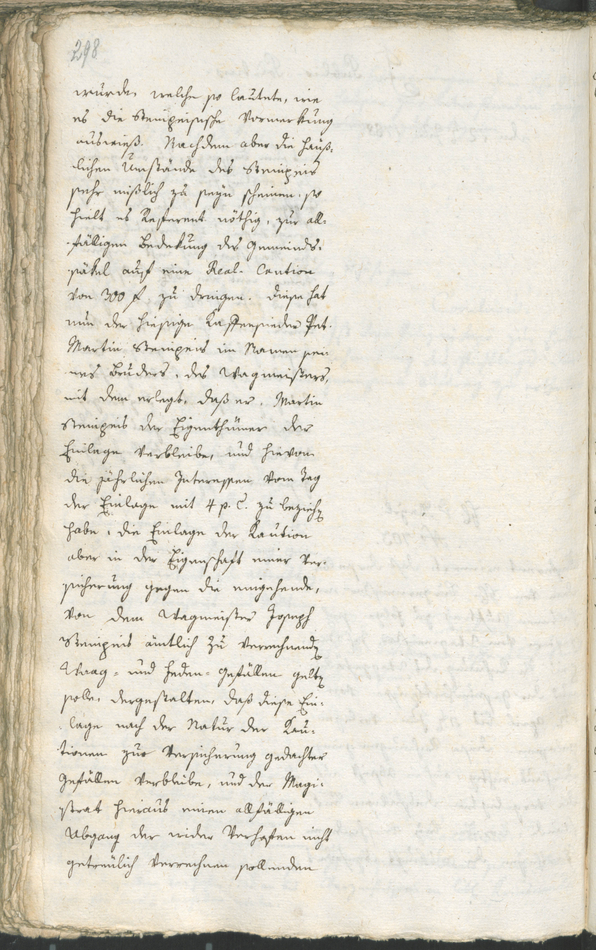 298
wurde, welche so lautete, wie
es die Steinpeisische Vormerkung
ausweiß. Nachdem aber die häus-
lichen Umstände des Steinpeis
sehr mißlich zu seyn scheinen, so
hielt es Referent nöthig, zur all-
fälligen Bedekung des Gemeinds-
säkel auf eine Real-Caution
von 300 f. zu dringen. Diese hat
nun der hiesige Kaffeesieder
Martin Steinpeis im Namen sei-
nes Bruders, des Wagmeisters,
mit dem erlegt, daß er, Martin
Steinpeis der Eigenthümer der
Einlage verbleibe, und hievon
die jährlichen Interessen vom Tag
der Einlage mit 4 p. C. zu beziehen
habe, die Einlage der Kaution
aber in der Eigenschaft einer Ver-
sicherung gegen die eingehende,
von dem Wagmeister Joseph
Steinpeis ämtlich zu verrechnenden
Waag- und Gefällen gelten
solle, dergestalten, daß diese Ein-
lage nach der Natur der Kau-
tionen zur Versicherung gedachter
Gefällen verbleibe, und der Magi-
strat hieraus einen allfälligen
Abgang der wider Verhoffen nicht
getreulich verrechnen sollenden